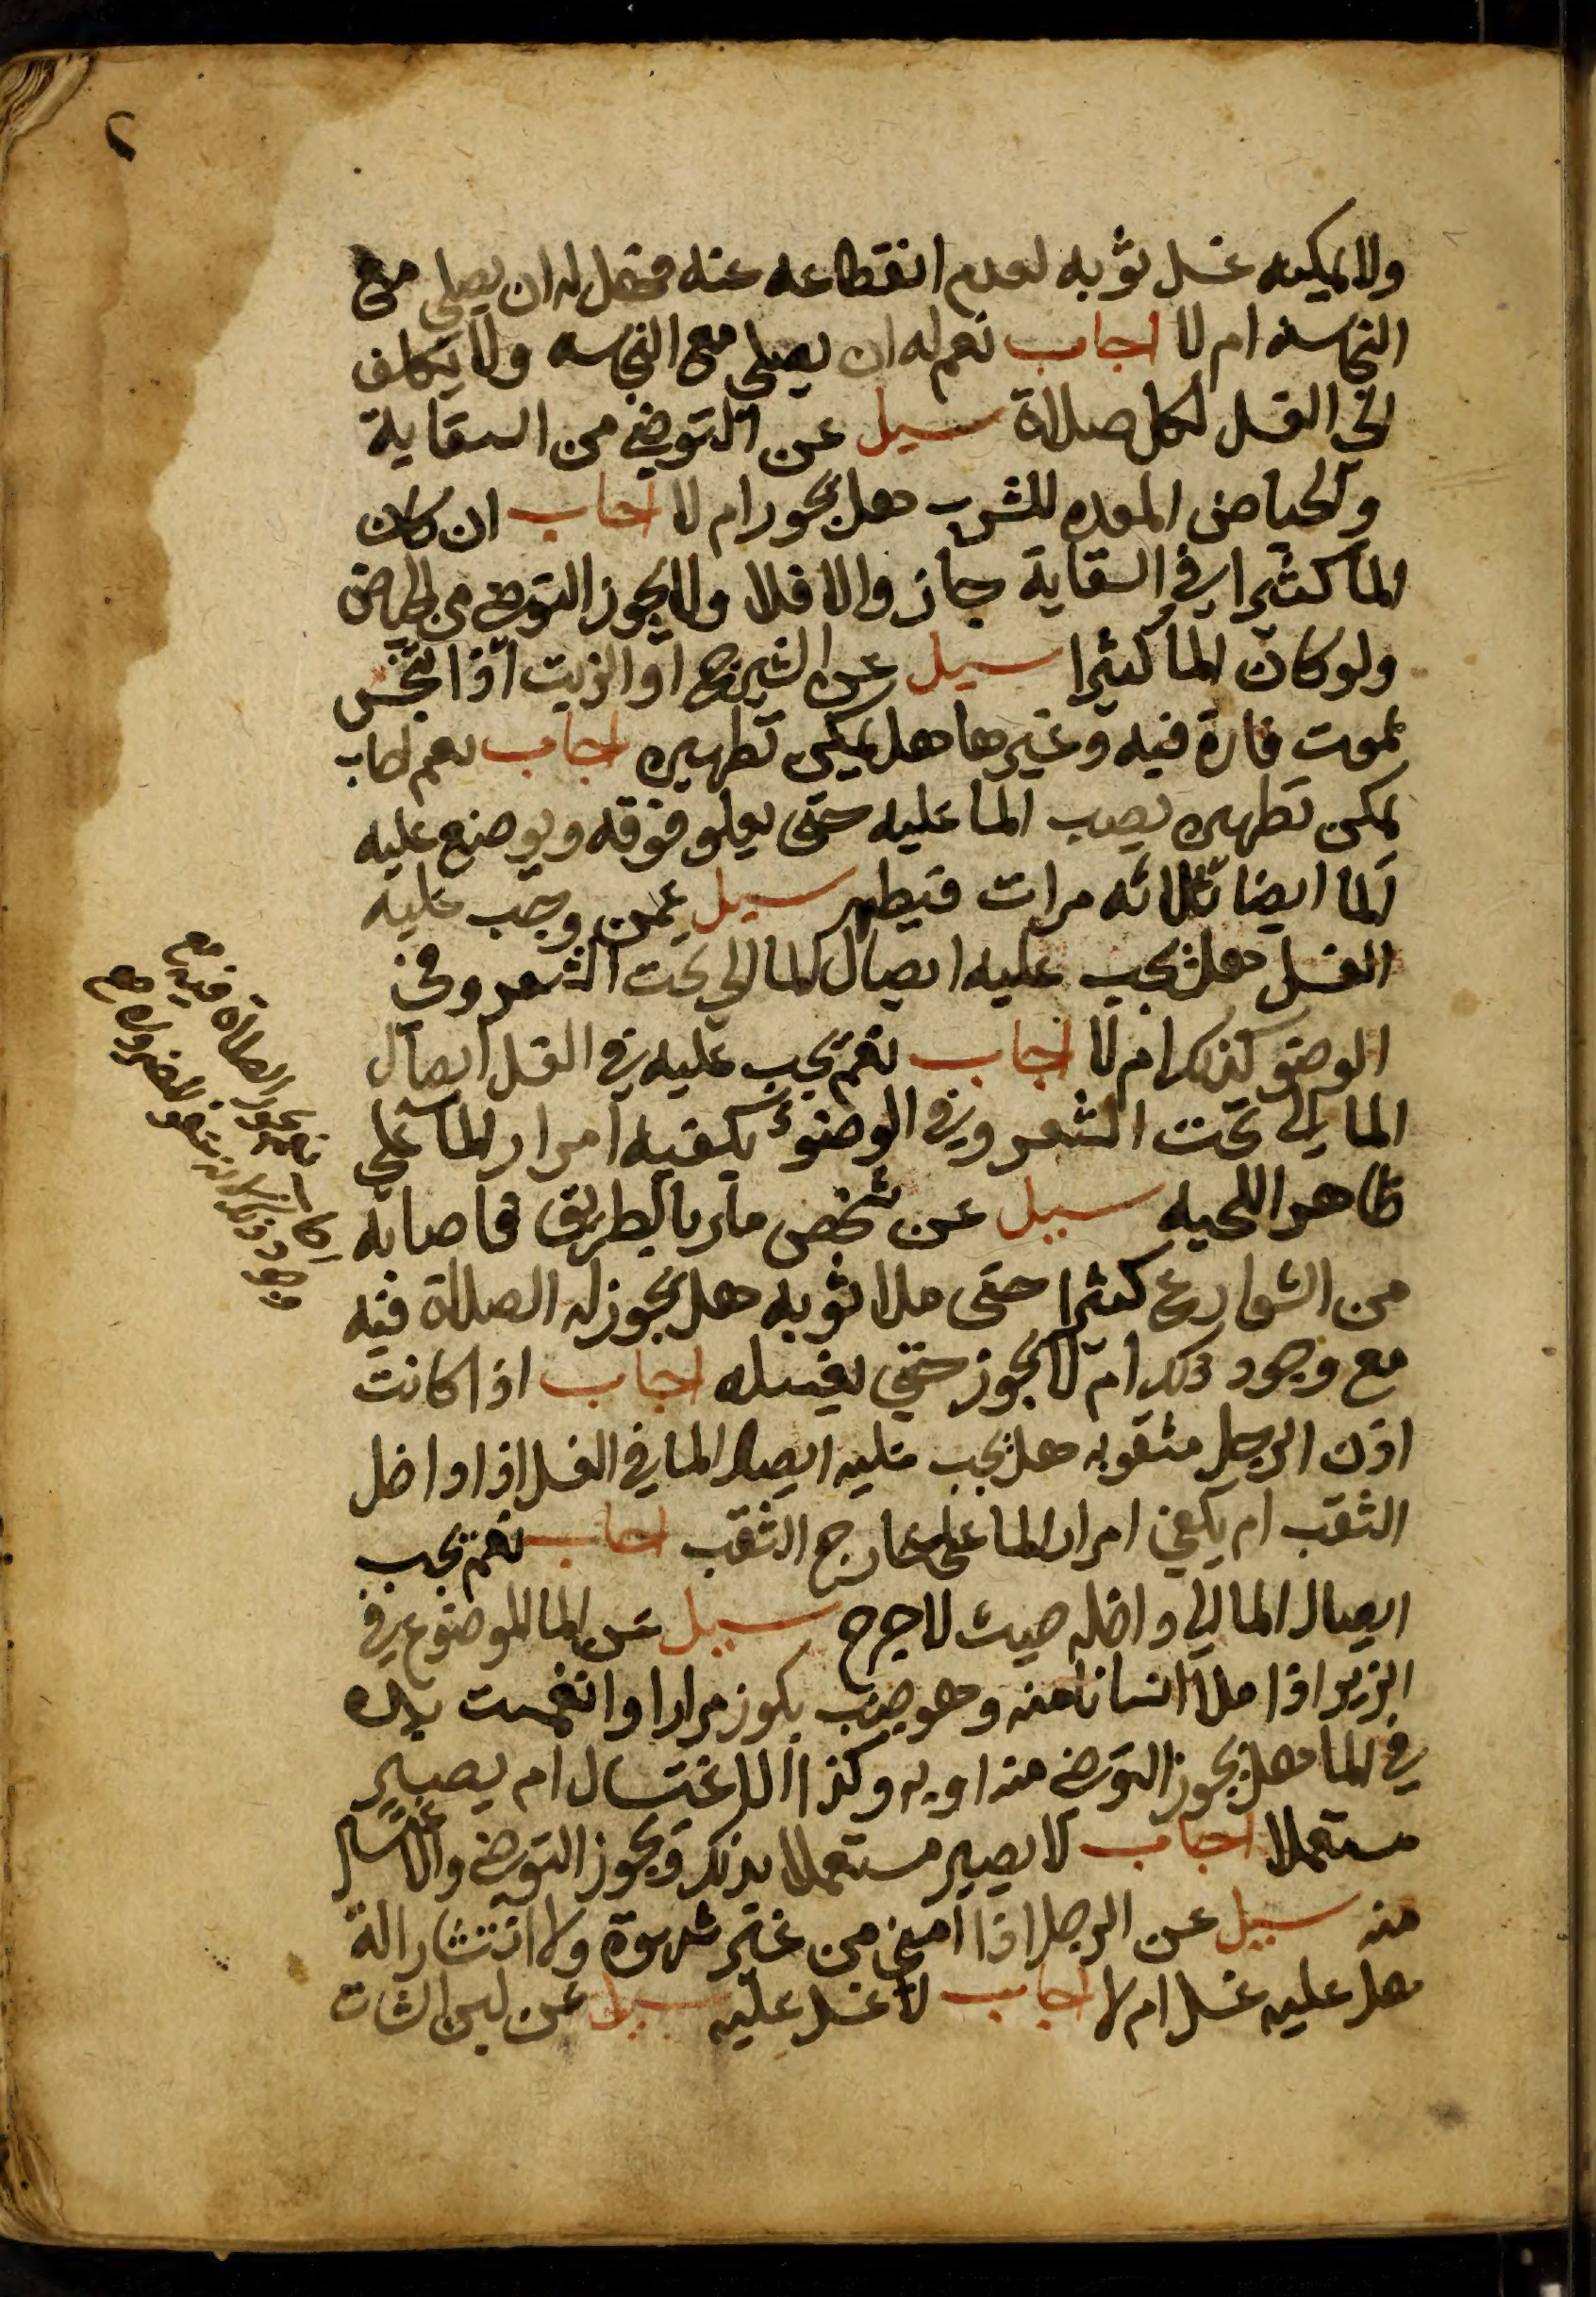 ٢
ولا يمكنه غسل ثوبه لعدم انقطاعه عنه فهل له ان يصلي مع
النجاسه ام لا اجاب نعم له ان يصلي مع النجاسه ولا يكلف
الى الغسل لكل صلاة سيل عن التوضي من السقاية
والحياض المعده للشرب هل يجوز ام لا اجاب ان كان
الما كثيرا في السقاية جاز والا فلا ولا يجوز التوضي من الحياض
ولو كان الما كثيرا سيل عن الشيرج او الزيت اذا تنجس
بموت فارة فيه وغيرها هل يمكن تطهيره اجاب نعم
يمكن تطهيره بصب الما عليه حتى يعلو فوقه ويوضع عليه
الما ايضا ثلاثه مرات فيطهر سيل عمن وجب عليه
الغسل هل يجب عليه ايصال الما الي تحت الشعر وفي
الوضو كذلك ام لا اجاب نعم يجب عليه في الغسل ايصال
الما الى تحت الشعر وفي الوضوء يكفيه امرار الما علي
ظاهر اللحيه سيل عن شخص مار بالطريق فاصابه
من الشوارع كثيرا حتى ملا ثوبه هل يجوز له الصلاة فيه
مع وجود ذلك ام لا يجوز حتي يغسله اجاب اذا كانت
اذن الرجل مثقوبه هل يجب عليه ايصال الما في الغسل اذا داخل
الثقب ام يكفي امرار الما على خارج الثقب اجاب نعم يجب
ايصال الما الي داخله حيث لا حرج سيل عن الما الموضوع في
الزير اذا ملا انسانا منه وهو جنب بكوز مرارا وانغمست يده
في الما هل يجوز التوضي منه او به وكذا الاغتسال ام يصير
مستعملا اجاب لا يصير مستعملا بذلك ويجوز التوضي والاغتسال
منه سيل عن الرجل اذا امني من غير شهوة ولا انتشار الة
هل عليه غسل ام لا اجاب لا غسل عليه سيل عن لبن الشات
نعم يجوز الصلاة فيه مع